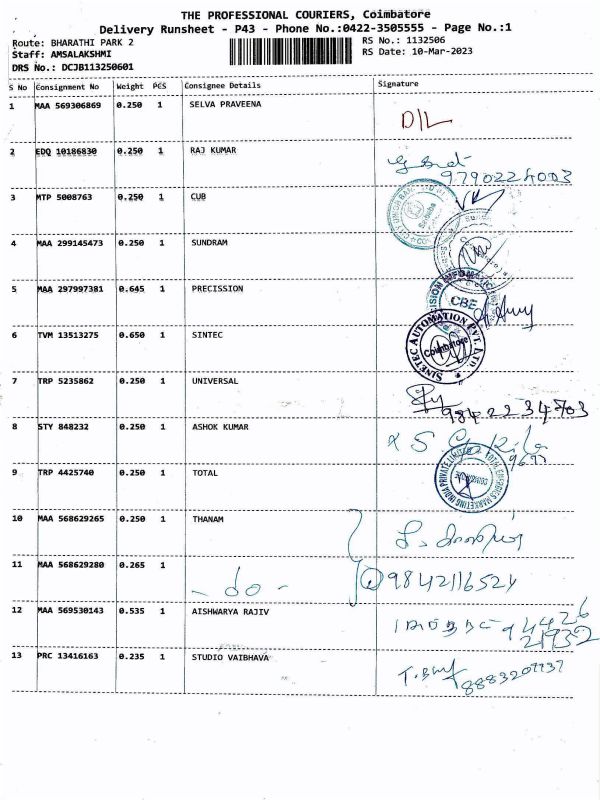 THE PROFESSIONAL COURIERS, Coimbatore
Delivery Runsheet - P43 - Phone No.:0422-3505555 - Page No.:1
Route: BHARATHI PARK 2 RS No.: 1132506
Staff: AMSALAKSHMI RS Date: 10-Mar-2023
DRS No.: DCJB113250601
S No Consignment No Weight PCS Consignee Details Signature
1 MAA 569306869 0.250 1 SELVA PRAVEENA D/L
2 EDQ 10186830 0.250 1 RAJ KUMAR
9790224003
3 MTP 5008763 0.250 1 CUB
4 MAA 299145473 0.250 1 SUNDRAM
5 MAA 297997381 0.645 1 PRECISSION CBE
6 TVM 13513275 0.650 1 SINTEC SINETEC AUTOMATION PVT. LTD. Coimbatore
7 TRP 5235862 0.250 1 UNIVERSAL
9842234703
8 STY 848232 0.250 1 ASHOK KUMAR
9 TRP 4425740 0.250 1 TOTAL
10 MAA 568629265 0.250 1 THANAM
11 MAA 568629280 0.265 1 - do - 9842116524
12 MAA 569530143 0.535 1 AISHWARYA RAJIV 94426
21932
13 PRC 13416163 0.235 1 STUDIO VAIBHAVA
8883207737